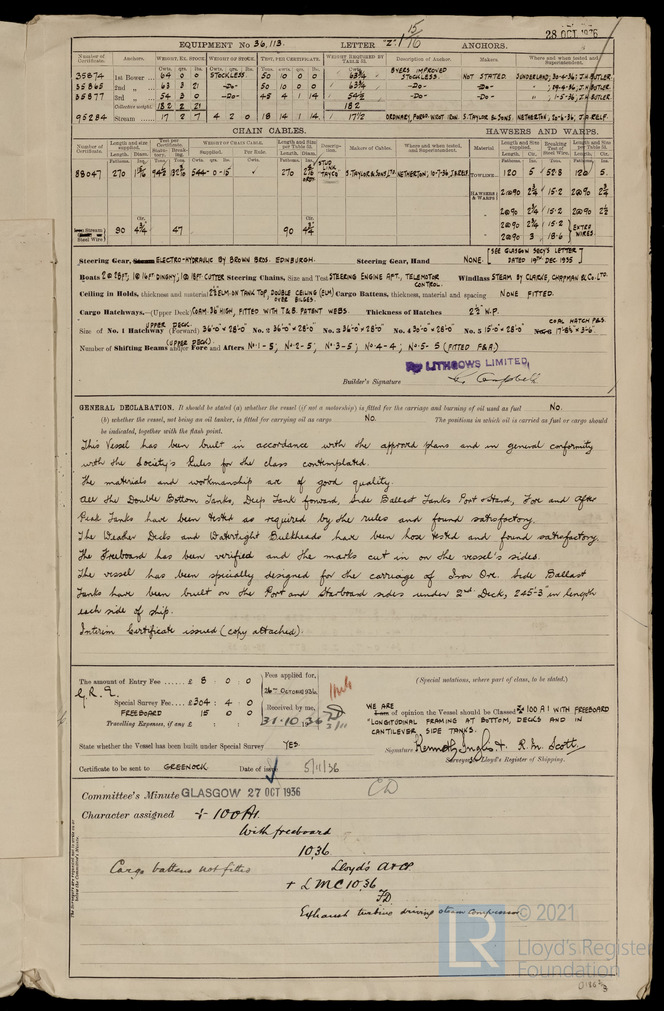 28 OCT 1936
EQUIPMENT No 36,113. LETTER "Z" 1 15/16 ANCHORS.
Number of Certificate. Anchors. WEIGHT, EX. STOCK. WEIGHT OF STOCK. TEST, PER CERTIFICATE. WEIGHT REQUIRED BY TABLE 31. Description of Anchor. Makers. Where and when tested and Superintendent.
35874 1st Bower 64 0 0 STOCKLESS. 50 10 0 0 63¾ BYERS IMPROVED STOCKLESS. NOT STATED SUNDERLAND; 30-4-36; J.H. BUTLER.
35865 2nd „ 63 3 21 -Do- 50 10 0 0 63¾ -Do- -Do- „ ; 29-4-36; J.H. BUTLER.
35877 3rd „ 54 3 0 -Do- 45 4 1 14 54½ -Do- -Do- „ ; 1-5-36; J.H. BUTLER.
Collective weight 182 2 21 182
95284 Stream 17 2 7 4 2 0 18 14 1 14 17½ ORDINARY, FORGD. WGHT. IRON S. TAYLOR & SONS. NETHERTON; 20-6-36; J.H. RELF.
CHAIN CABLES. HAWSERS AND WARPS.
88047 270 544-0-15 270 STUD LINK "TAYCO" S. TAYLOR & SONS LTD. NETHERTON; 10-7-36; TOWLINE 120 5 52·8 120 5
HAWSERS & WARPS 2@90 2¾ 15·2 2@90 2¾
" 2@90 2¾ 15·2 2@90 2½
" 2@90 2¾ 15·2 EXTRA WIRES.
Stream Steel Wire 90 4¾ 47 90 4¾ " 2@90 3 18·6
Steering Gear, Steam ELECTRO-HYDRAULIC BY BROWN BROS. EDINBURGH. Steering Gear, Hand NONE. [SEE GLASGOW SECY'S LETTER DATED 19TH DEC. 1935]
Boats 2@28FT; 1@16FT DINGHY; 1@18FT CUTTER Steering Chains, Size and Test STEERING ENGINE AFT, TELEMOTOR CONTROL. Windlass STEAM BY CLARKE, CHAPMAN & CO. LTD.
Ceiling in Holds, thickness and material 2½ ELM ON TANK TOP, DOUBLE CEILING (ELM) OVER BILGES. Cargo Battens, thickness, material and spacing NONE FITTED.
Cargo Hatchways.—(Upper Deck) COAM. 36" HIGH, FITTED WITH T&B. PATENT WEBS. Thickness of Hatches 2½" W.P.
Size of No. 1 Hatchway UPPER DECK (Forward) 36'-0"×28'-0" No. 2 36'-0"×28'-0" No. 3 36'-0"×28'-0" No. 4 30'-0"×28'-0" No. 5 15'-0"×28'-0" COAL HATCH P&S. 17'-8½"×3'-6"
Number of Shifting Beams (UPPER DECK) and/or Fore and Afters No·1 - 5; No·2 - 5; No·3 - 5; No·4 - 4; No·5 - 5 (FITTED F&A)
LITHGOWS LIMITED.
Builder's Signature Campbell
GENERAL DECLARATION. It should be stated (a) whether the vessel (if not a motorship) is fitted for the carriage and burning of oil used as fuel No.
(b) whether the vessel, not being an oil tanker, is fitted for carrying oil as cargo No. The positions in which oil is carried as fuel or cargo should
be indicated, together with the flash point.
This Vessel has been built in accordance with the approved plans and in general conformity
with the Society's Rules for the class contemplated.
The materials and workmanship are of good quality.
All the Double Bottom Tanks, Deep Tank forward, Side Ballast Tanks Port & Stard, Fore and After
Peak Tanks have been tested as required by the rules and found satisfactory.
The Weather Decks and Watertight Bulkheads have been hose tested and found satisfactory.
The Freeboard has been verified and the marks cut in on the vessel's sides.
The vessel has been specially designed for the carriage of Iron Ore. Side Ballast
Tanks have been built on the Port and Starboard sides under 2nd Deck, 245'-3" in length
each side of ship.
Interim Certificate issued (copy attached).
The amount of Entry Fee £ 8 : 0 : 0
Special Survey Fee £304 : 4 : 0
FREEBOARD 15 0 0
Travelling Expenses, if any £
Fees applied for, 26TH OCTOBER 1936
Received by me, 31.10.36
(Special notations, where part of class, to be stated.)
WE ARE of opinion the Vessel should be Classed ✠ 100 A1 WITH FREEBOARD
"LONGITUDINAL FRAMING AT BOTTOM, DECKS AND IN
CANTILEVER SIDE TANKS.
State whether the Vessel has been built under Special Survey YES.
Signature Kenneth Inglis & R. M. Scott
Surveyors to Lloyd's Register of Shipping.
Certificate to be sent to GREENOCK Date of issue 5/11/36
Committee's Minute GLASGOW 27 OCT 1936
Character assigned + 100A1
With freeboard
10,36
Cargo battens not fitted Lloyd's A & CP.
+ LMC 10,36
FD
Exhaust turbine driving steam compressor
© 2021
LR Lloyd's Register
Foundation